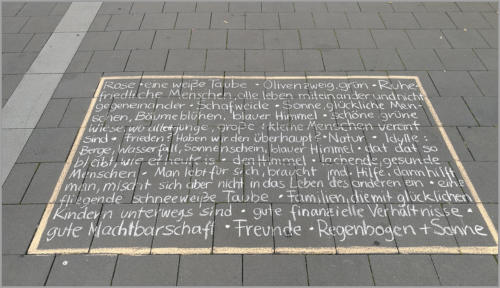 Rose • eine weiße Taube • Olivenzweig, grün • Ruhe •
friedliche Menschen, alle leben miteinander und nicht
gegeneinander • Schafweide • Sonne, glückliche Men-
schen, Bäume blühen, blauer Himmel • schöne grüne
Wiese, wo alle junge, große + kleine Menschen vereint
sind • Frieden? Haben wir den überhaupt? • Natur • Idylle:
Berge, Wasserfall, Sonnenschein, blauer Himmel • dat dat so
bleibt, wie et heute is • den Himmel • lachende, gesunde
Menschen • Man lebt für sich, braucht jmd. Hilfe, dann hilft
man, mischt sich aber nicht in das Leben des anderen ein • eine
fliegende schneeweiße Taube • Familien, die mit glücklichen
Kindern unterwegs sind • gute finanzielle Verhältnisse •
gute Nachtbarschaft • Freunde • Regenbogen + Sonne